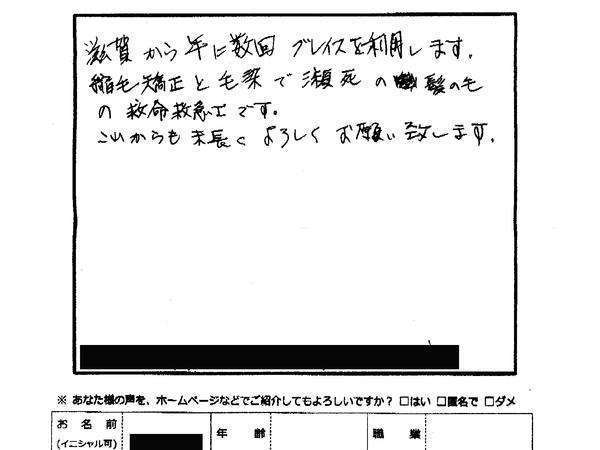 滋賀から年に数回 ブレイスを利用します。
縮毛矯正と毛染で瀕死の髪の毛
の救命救急士です。
これからも末長くよろしくお願い致します。
※ あなた様の声を、ホームページなどでご紹介してもよろしいですか? □はい □匿名で □ダメ
お名前 年齢 職業
(イニシャル可)